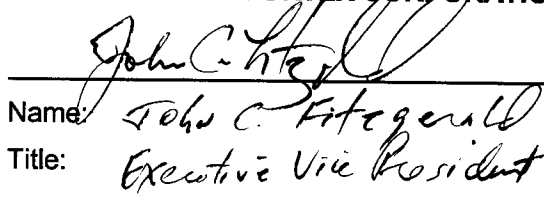 John C. Fitzgerald
Name: John C. Fitzgerald
Title: Executive Vice President